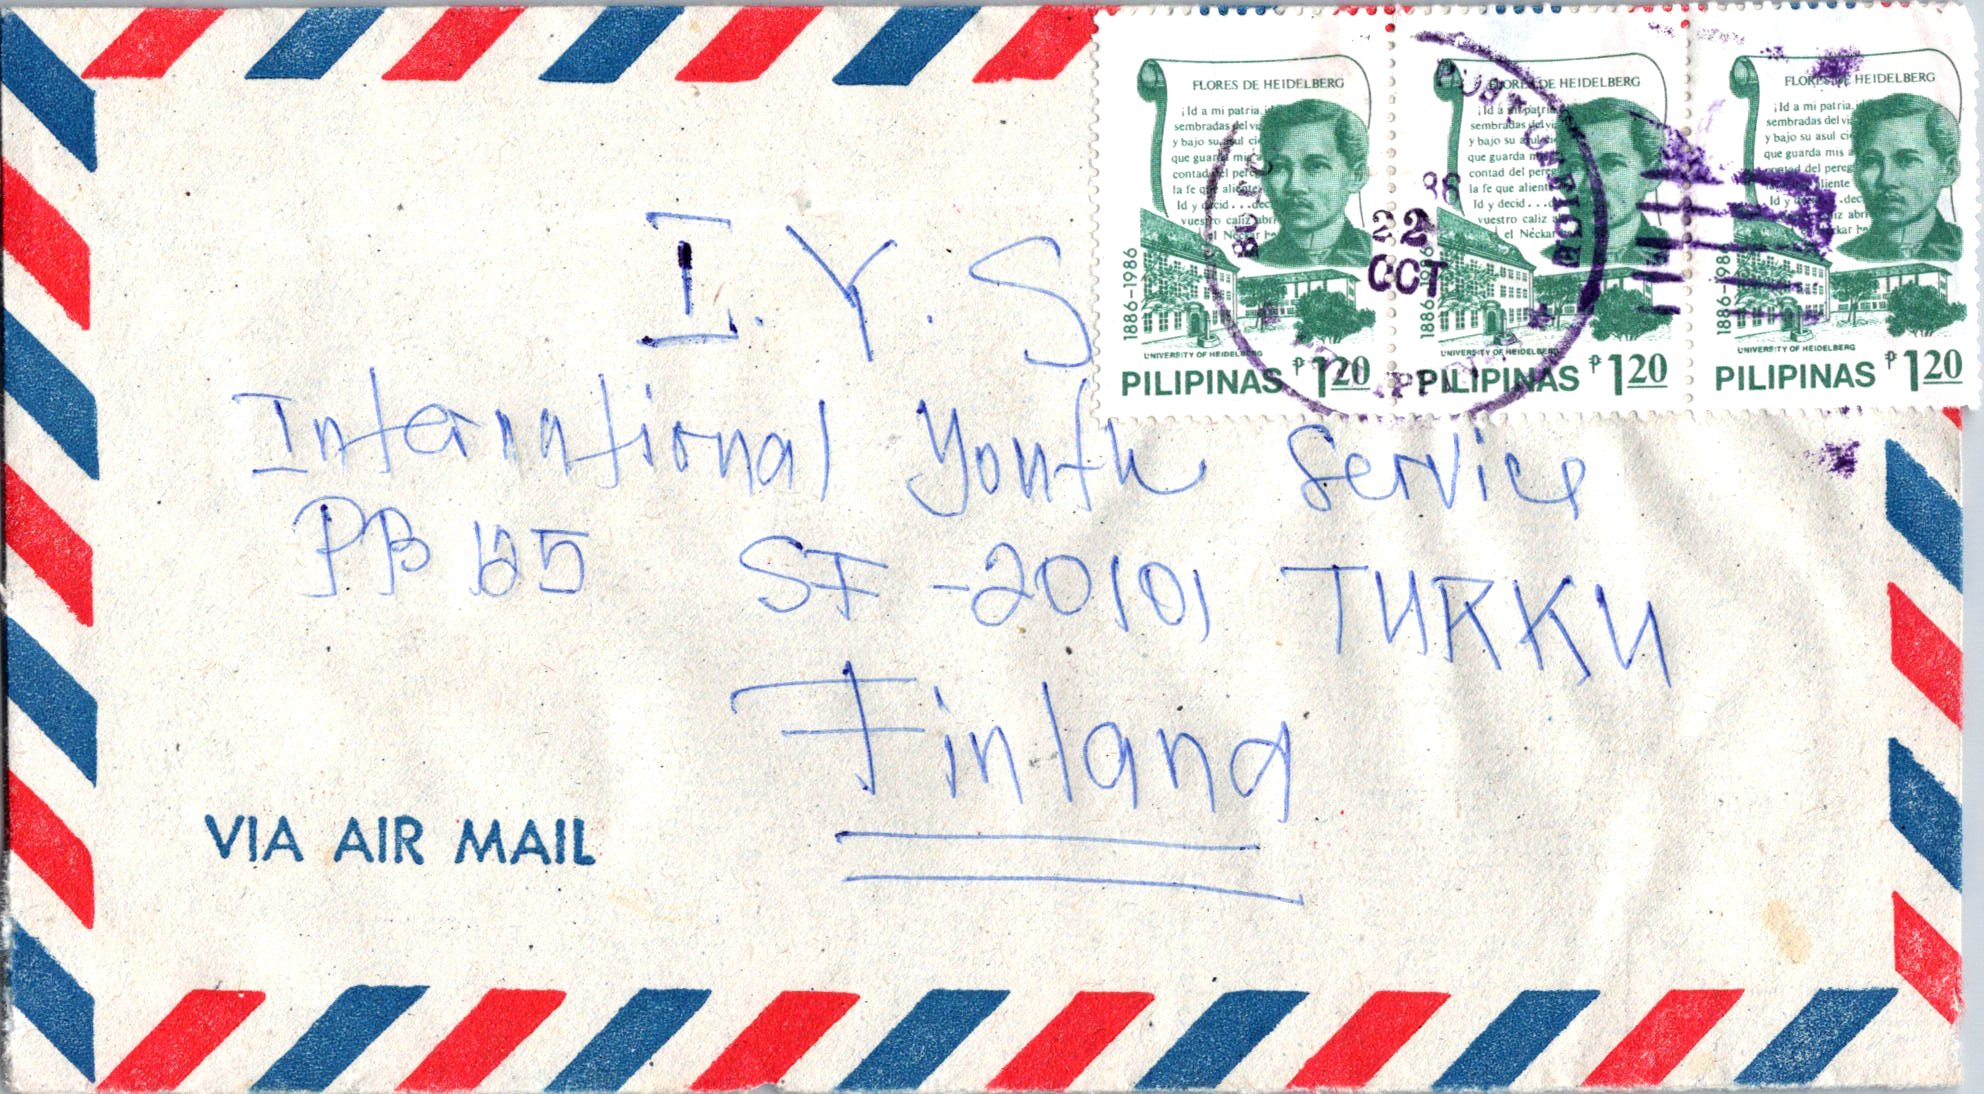 FLORES DE HEIDELBERG
¡Id a mi patria, id
sembradas del vi
y bajo su azul ci
que guarda mis a
contad del pereg
la fe que aliente
Id y decid . . . deci
vuestro caliz abri
el Néckar he
1886-1986
UNIVERSITY OF HEIDELBERG
PILIPINAS ₱1.20
FLORES DE HEIDELBERG
¡Id a mi patria,
sembradas del vi
y bajo su azul ci
que guarda m
contad del pereg
la fe que aliente
Id y decid . . . d
vuestro caliz ab
el Néckar
1886-1986
UNIVERSITY OF HEIDELBERG
PILIPINAS ₱1.20
FLORES DE HEIDELBERG
¡Id a mi patria, id
sembradas del vi
y bajo su asul cie
que guarda mis a
contad del pereg
aliente
Id y dec
liz abri
ckar he
1886-1986
UNIVERSITY OF HEIDELBERG
PILIPINAS ₱1.20
POST OFFICE
88
22
OCT
I. Y. S
International Youth Service
PB 125 SF-20101 TURKU
Finland
VIA AIR MAIL